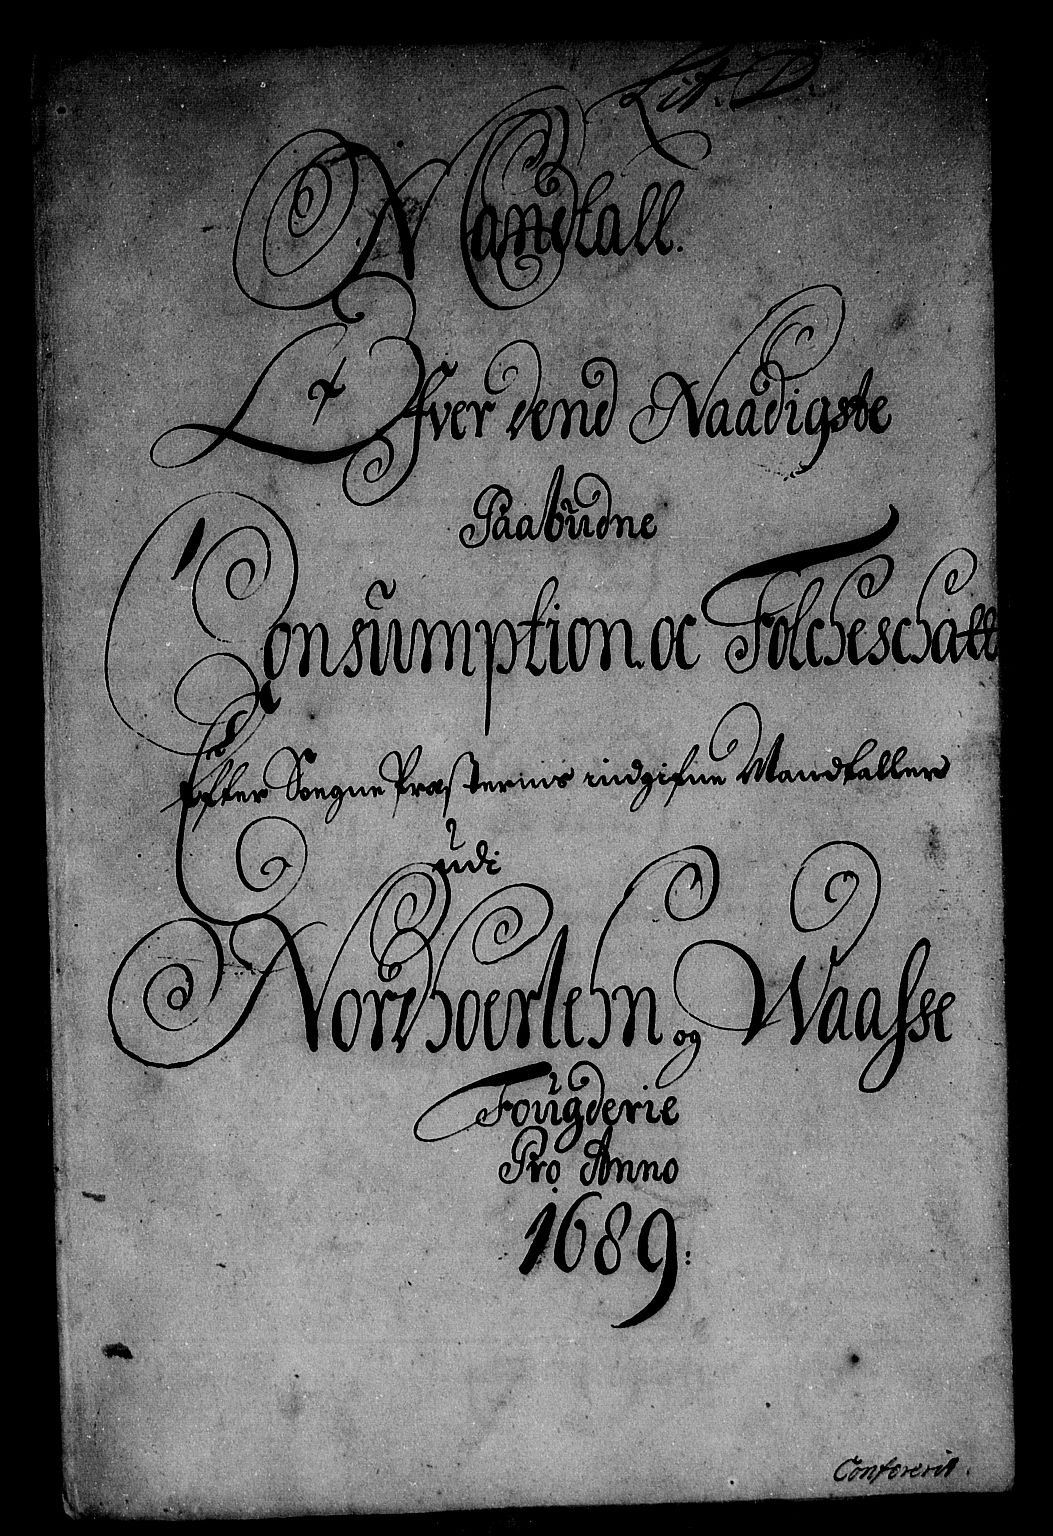 Lit. D.
Mandtall.
Ofver dend Naadigste
Paabudne
Consumption oc Folcheschatt
Efter Sogne Præsternis indgifne Mandtaller
udi
Nordhoerlehn og Waasse
Fougderie
Pro Anno
1689:
Confererit.